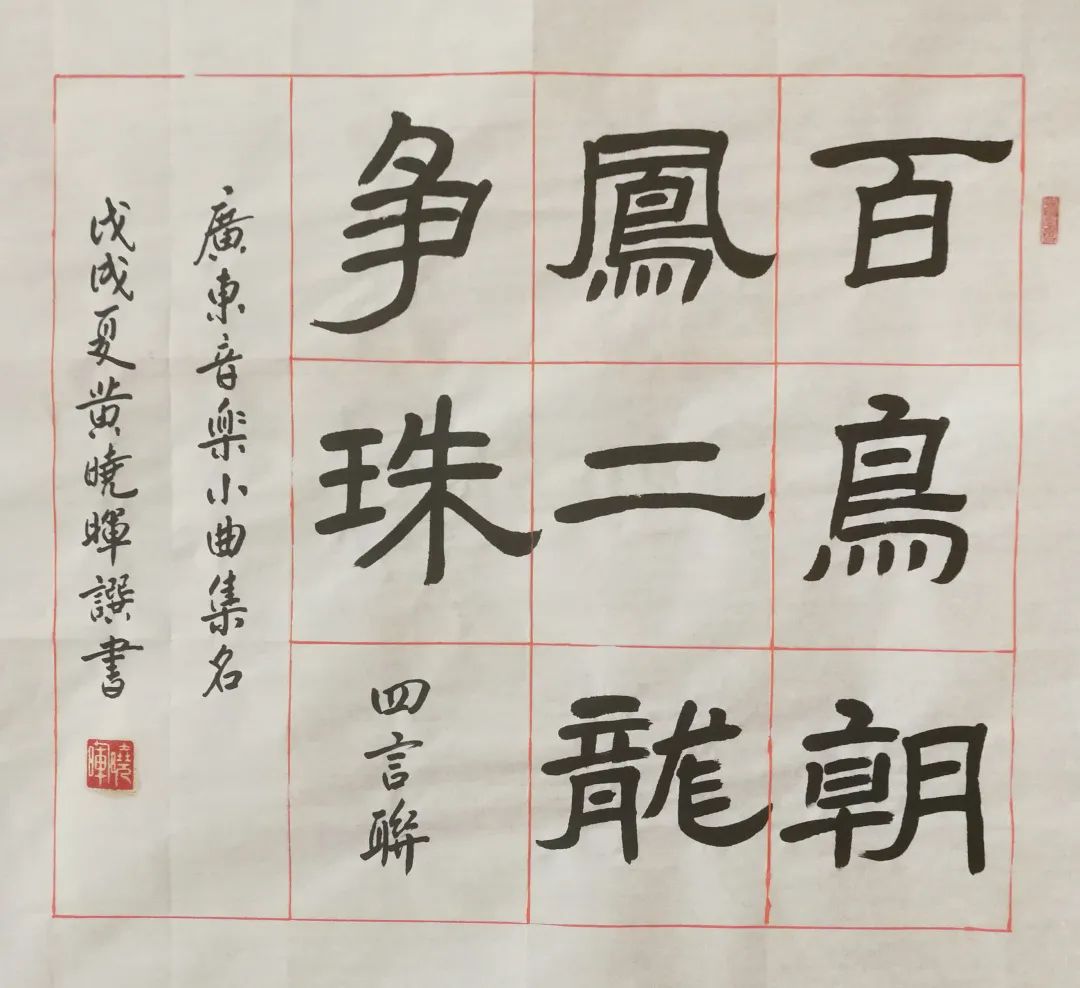 百鳥朝
鳳二龍
争珠
四言聯
廣東音樂小曲集名
戊戌夏黄曉暉譔書
曉暉